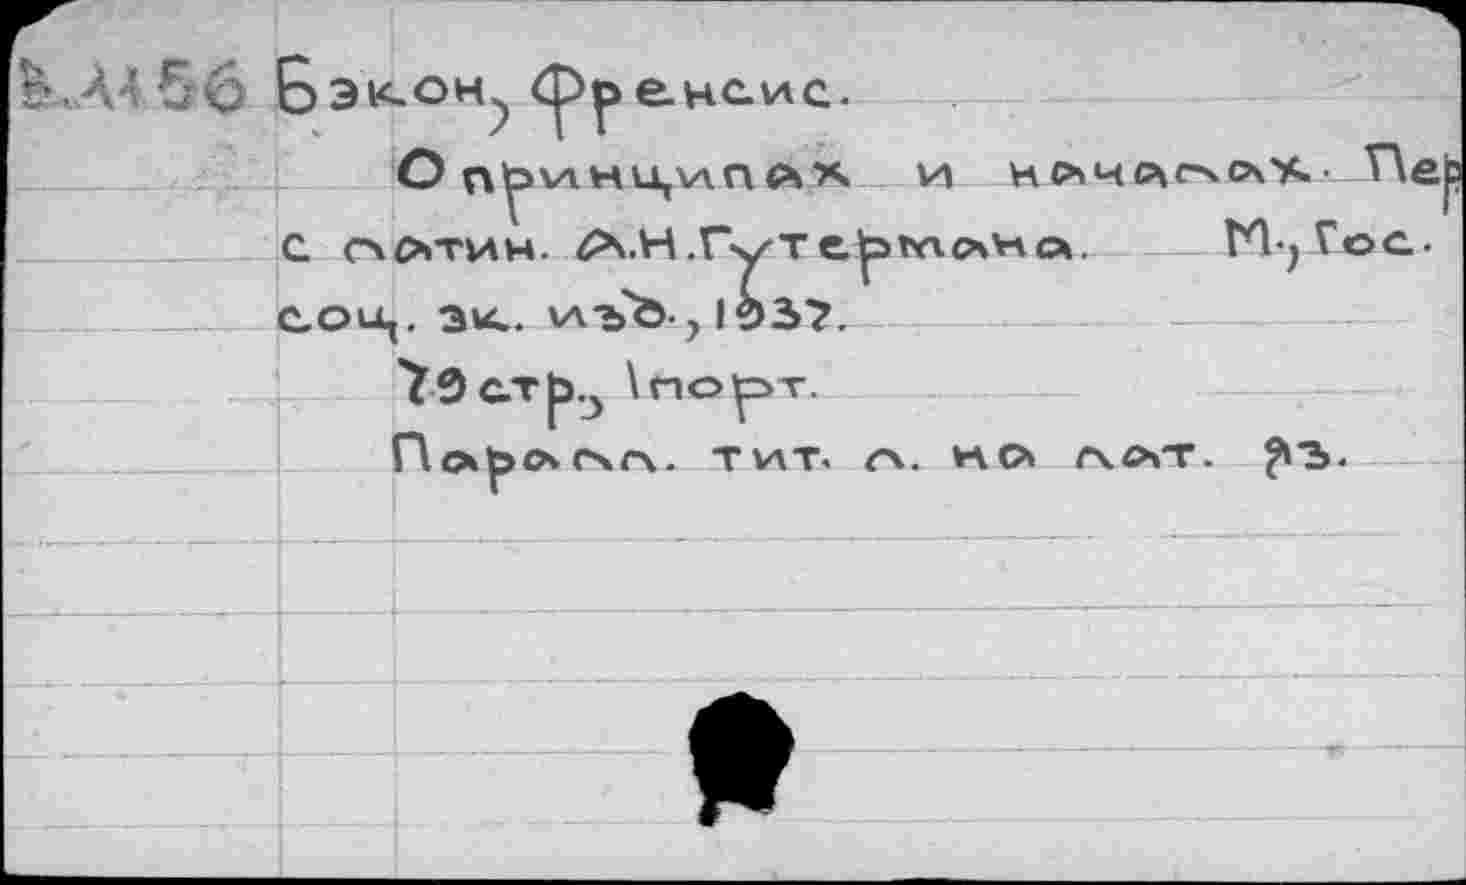 Бэкон, Френсис.
О принципах и началах. Пер
с латин. А.Н.Гутермана. М., Гос.
соц. эк. изд., 1937.
79 стр., 1 порт.
Паралл. тит. л. на лат. яз.